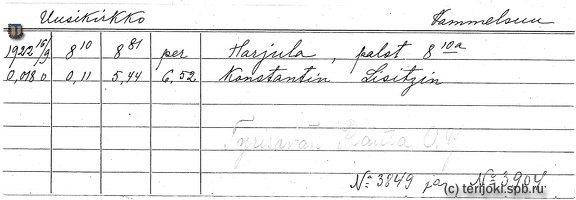 Uusikirkko Vammelsuu
1922 16/9 8¹⁰ 8⁸¹ per Harjula, palst 8¹⁰ᵃ
0,0180 0,11 5,44 6,52 Konstantin Lisitzin
Ranta O.Y
Nº 3849 ja Nº 3904
(c) terijoki.spb.ru